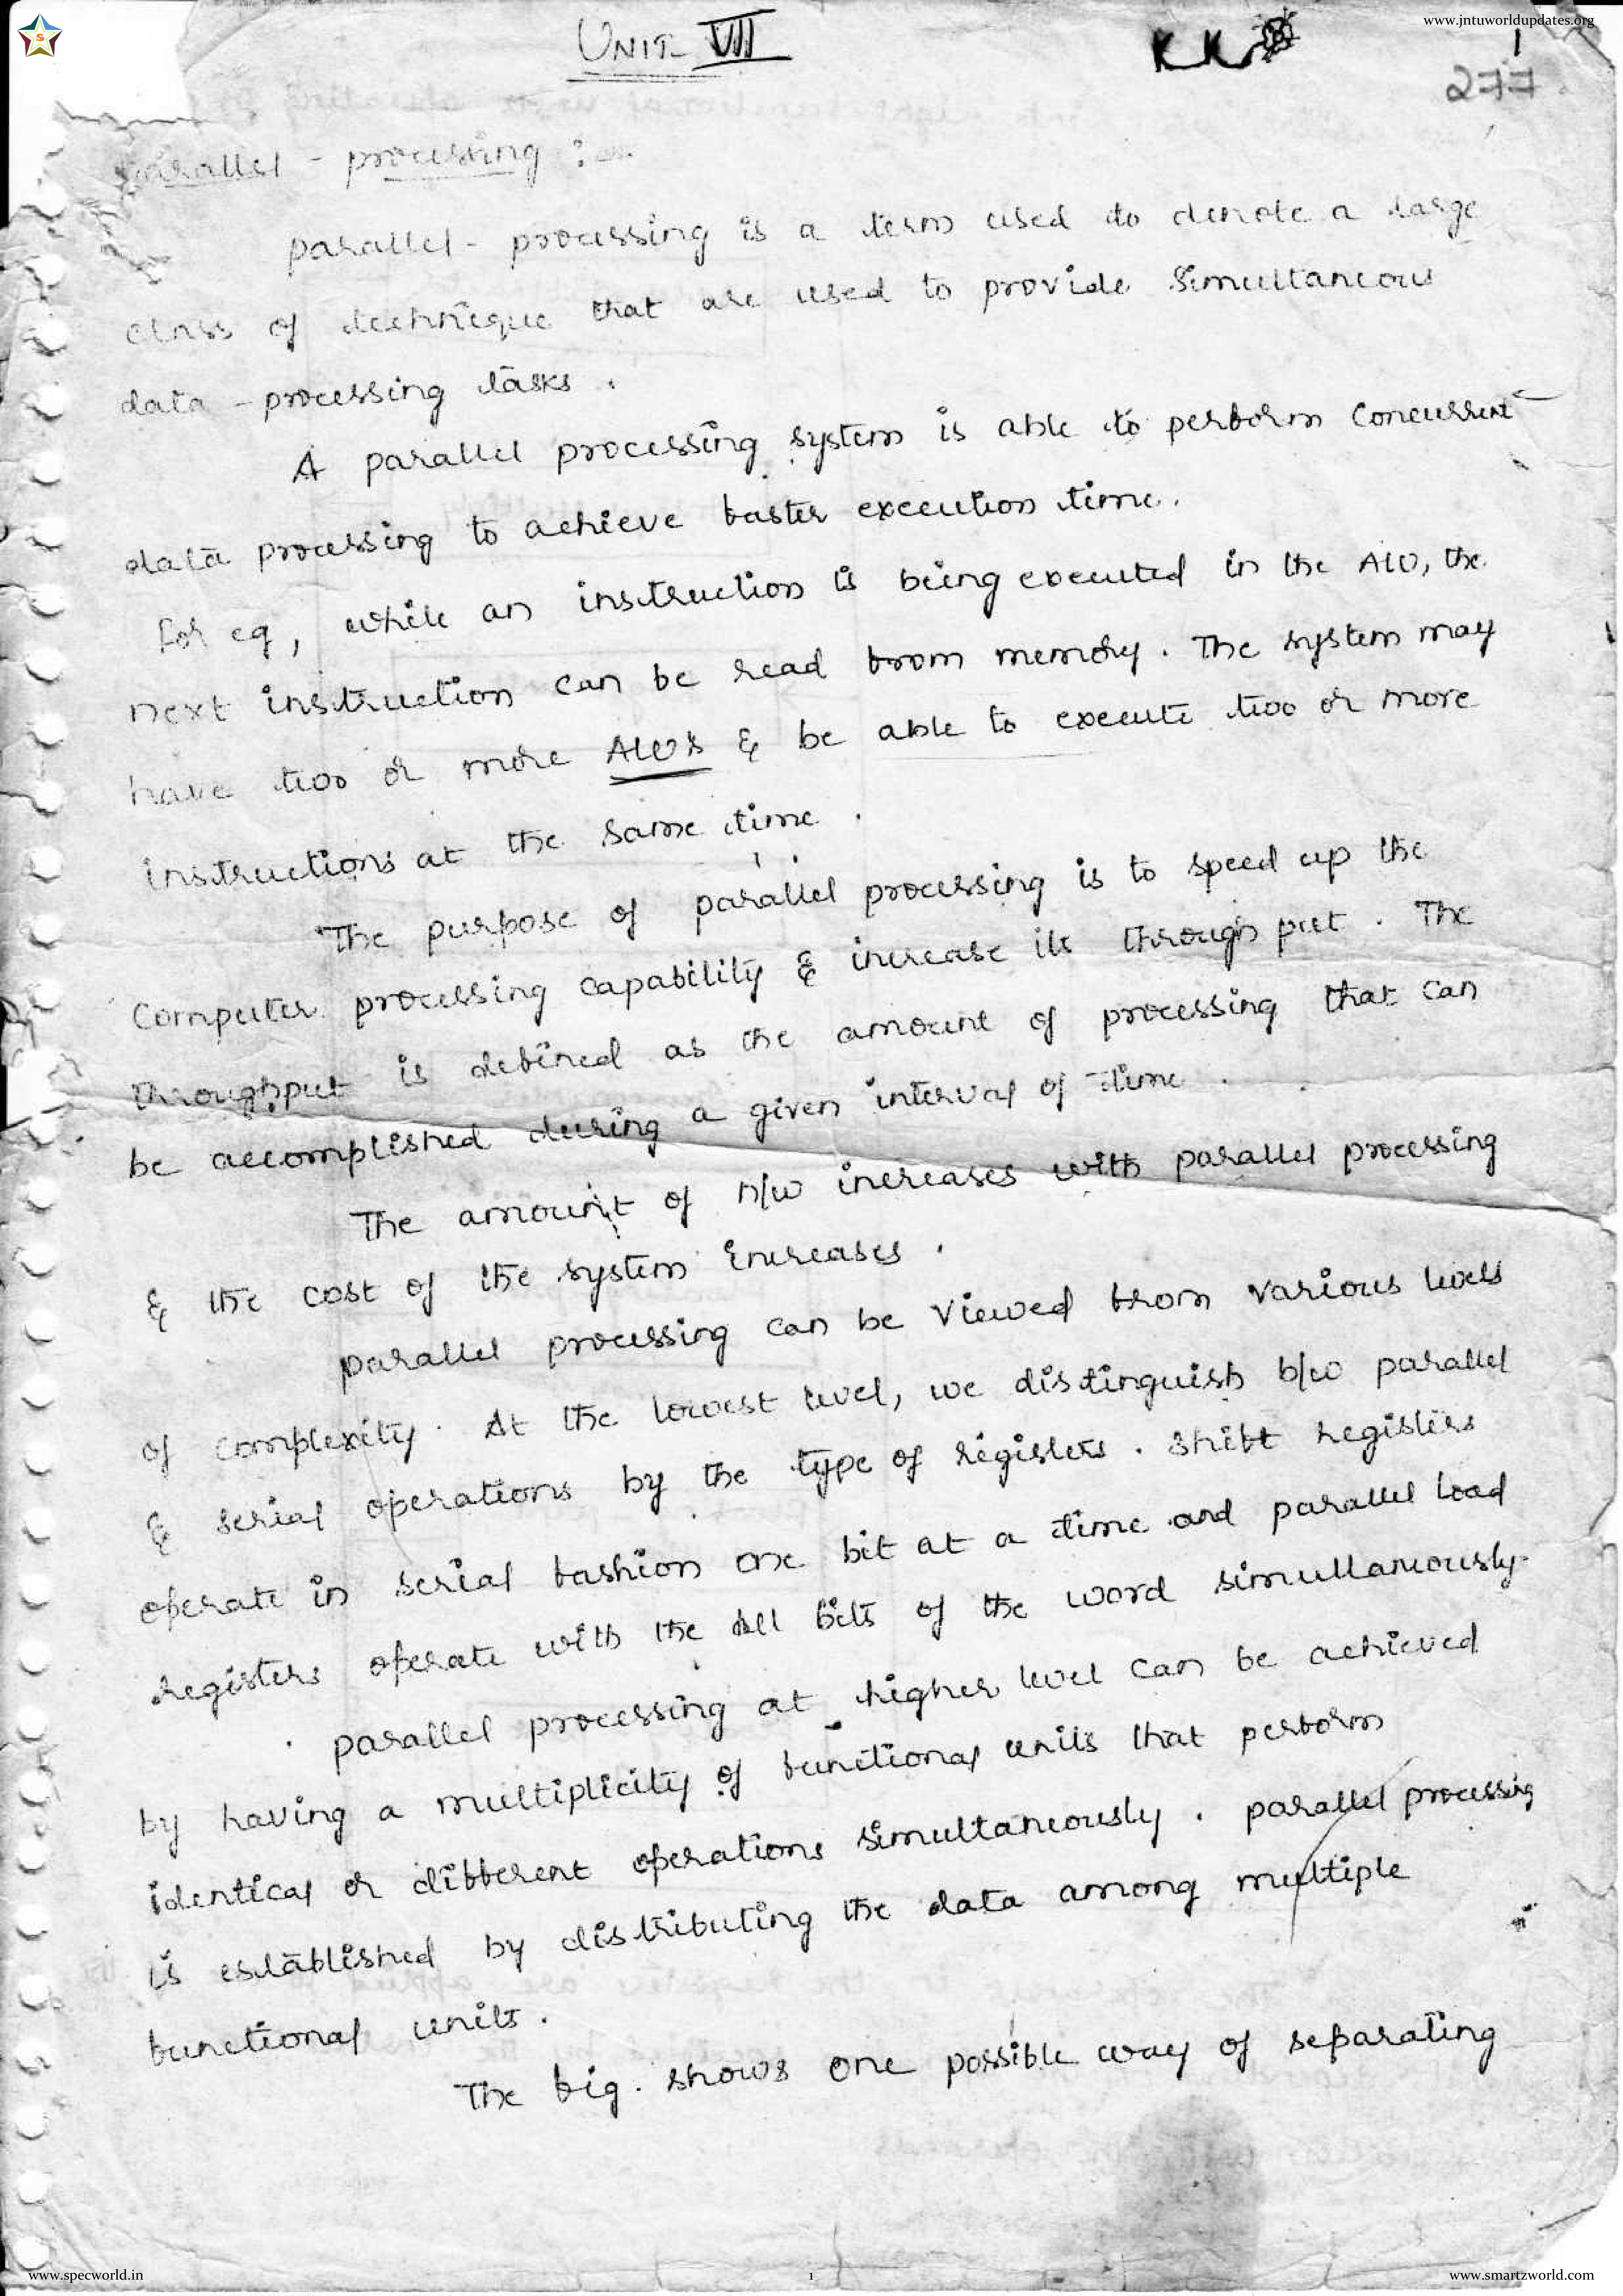 www.jntuworldupdates.org
UNIT - VII
1
277
Parallel - processing :-
parallel - processing is a term used to denote a large
class of technique that are used to provide simultaneous
data - processing tasks .
A parallel processing system is able to perform concurrent
data processing to achieve faster execution time .
For eg , while an instruction is being executed in the ALU, the
next instruction can be read from memory . The system may
have two or more ALU's & be able to execute two or more
instructions at the same time .
The purpose of parallel processing is to speed up the
computer processing capability & increase its through put . The
throughput is defined as the amount of processing that can
be accomplished during a given interval of time .
The amount of h/w increases with parallel processing
& the cost of the system increases .
parallel processing can be viewed from various levels
of complexity . At the lowest level, we distinguish b/w parallel
& serial operations by the type of registers . shift registers
operate in serial fashion one bit at a time and parallel load
registers operate with the all bits of the word simultaneously .
parallel processing at higher level can be achieved
by having a multiplicity of functional units that perform
identical or different operations simultaneously . parallel processing
is established by distributing the data among multiple
functional units .
The fig . shows one possible way of separating
www.specworld.in
1
www.smartzworld.com